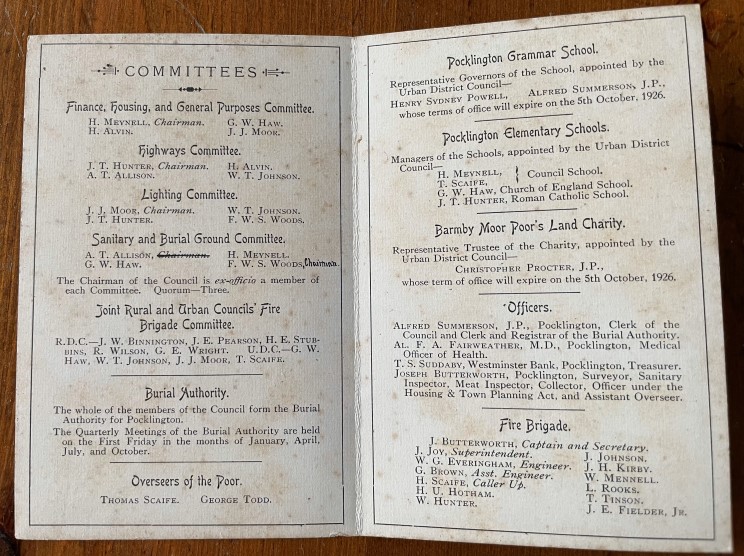 COMMITTEES
Finance, Housing, and General Purposes Committee.
H. MEYNELL, Chairman. G. W. HAW.
H. ALVIN. J. J. MOOR.
Highways Committee.
J. T. HUNTER, Chairman. H. ALVIN.
A. T. ALLISON. W. T. JOHNSON.
Lighting Committee.
J. J. MOOR, Chairman. W. T. JOHNSON.
J. T. HUNTER. F. W. S. WOODS.
Sanitary and Burial Ground Committee.
A. T. ALLISON, Chairman. H. MEYNELL.
G. W. HAW. F. W. S. WOODS, Chairman
The Chairman of the Council is ex-officio a member of
each Committee. Quorum—Three.
Joint Rural and Urban Councils' Fire
Brigade Committee.
R.D.C.—J. W. BINNINGTON, J. E. PEARSON, H. E. STUB-
BINS, R. WILSON, G. E. WRIGHT. U.D.C.—G. W.
HAW, W. T. JOHNSON, J. J. MOOR, T. SCAIFE.
Burial Authority.
The whole of the members of the Council form the Burial
Authority for Pocklington.
The Quarterly Meetings of the Burial Authority are held
on the First Friday in the months of January, April,
July, and October.
Overseers of the Poor.
THOMAS SCAIFE. GEORGE TODD.
Pocklington Grammar School.
Representative Governors of the School, appointed by the
Urban District Council—
HENRY SYDNEY POWELL, ALFRED SUMMERSON, J.P.,
whose terms of office will expire on the 5th October, 1926.
Pocklington Elementary Schools.
Managers of the Schools, appointed by the Urban District
Council—
H. MEYNELL, } Council School,
T. SCAIFE,
G. W. HAW, Church of England School.
J. T. HUNTER, Roman Catholic School.
Barmby Moor Poor's Land Charity.
Representative Trustee of the Charity, appointed by the
Urban District Council—
CHRISTOPHER PROCTER, J.P.,
whose term of office will expire on the 5th October, 1926.
Officers.
ALFRED SUMMERSON, J.P., Pocklington, Clerk of the
Council and Clerk and Registrar of the Burial Authority.
AL. F. A. FAIRWEATHER, M.D., Pocklington, Medical
Officer of Health.
T. S. SUDDABY, Westminster Bank, Pocklington, Treasurer.
JOSEPH BUTTERWORTH, Pocklington, Surveyor, Sanitary
Inspector, Meat Inspector, Collector, Officer under the
Housing & Town Planning Act, and Assistant Overseer.
Fire Brigade.
J. BUTTERWORTH, Captain and Secretary.
J. JOY, Superintendent. J. JOHNSON.
W. G. EVERINGHAM, Engineer. J. H. KIRBY.
G. BROWN, Asst. Engineer. W. MENNELL.
H. SCAIFE, Caller Up. L. ROOKS.
H. U. HOTHAM. T. TINSON.
W. HUNTER. J. E. FIELDER, JR.